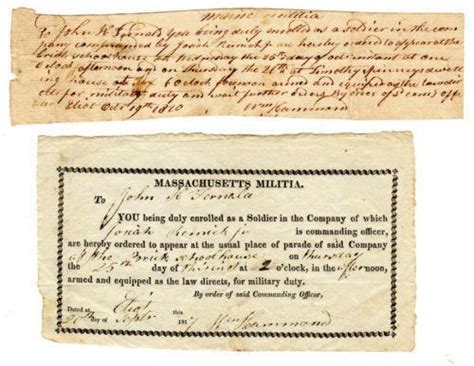 maine militia
To John K Fernald You being duly enrolled as a Soldier in the com
pany commanded by Josiah Remick Jr are hereby ordered to appear at the
Brick schoolhouse on Wednesday the 25th day of Oct instant at one
o clock afternoon and on Thursday the 26th at Timothy
house at o clock forenoon armed and equipped as the Law dir
ects for military duty and wait further orders By order of sd com off
Eliot Oct 19th 1820 Wm Hammond
MASSACHUSETTS MILITIA.
To John K Fernald
YOU being duly enrolled as a Soldier in the Company of which
Josiah Remick Jr is commanding officer,
are hereby ordered to appear at the usual place of parade of said Company
at the Brick schoolhouse on thursday
the 25th day of at 2 o'clock, in the afternoon,
armed and equipped as the law directs, for military duty.
By order of said Commanding Officer,
Dated at Eliot
20th day of Septr 1817 Wm Hammond